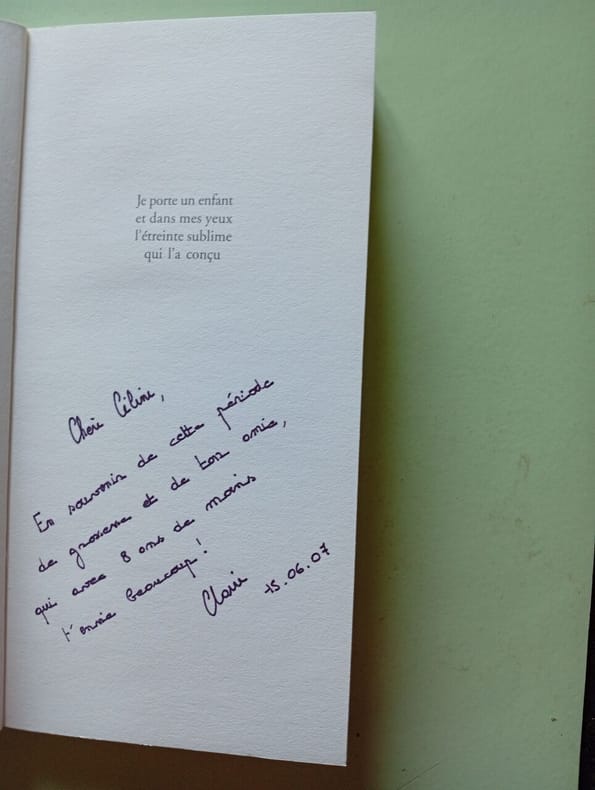 Je porte un enfant
et dans mes yeux
l'étreinte sublime
qui l'a conçu
Chère Céline,
En souvenir de cette période
de grossesse et de ton amie,
qui avec 8 ans de moins
t'envie beaucoup !
Claire 15.06.07